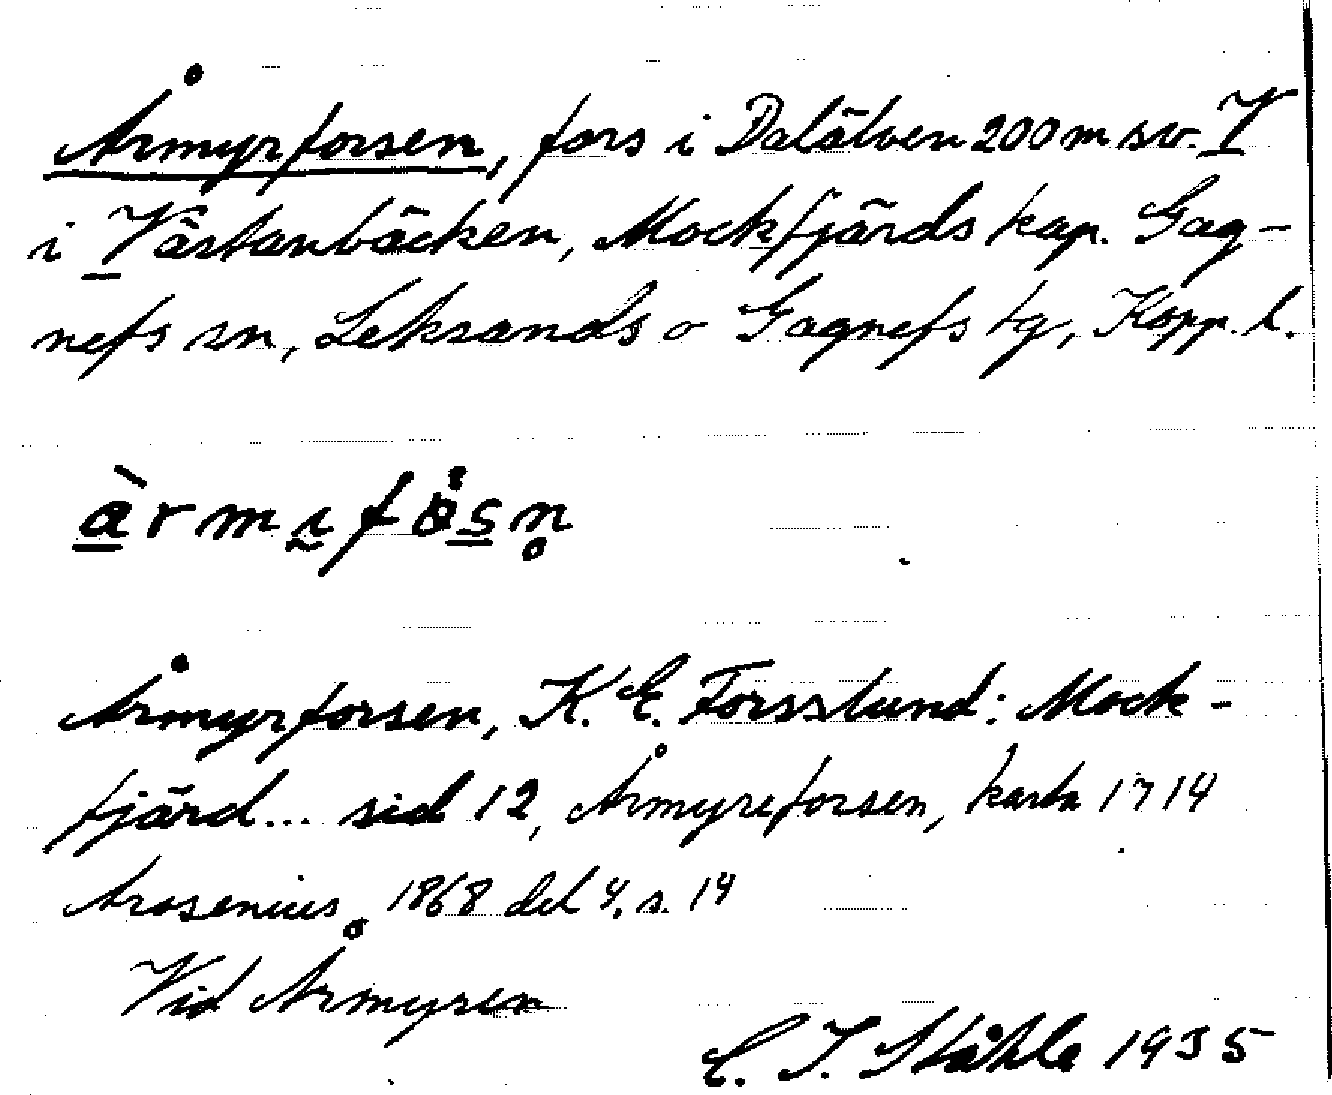 Årmyrforsen, fors i Dalälven 200 m sv. V
i Västanbäcken, Mockfjärds kap. Gag-
nefs sn, Leksands o Gagnefs tg, Kopp. l.
àrmifåsn̥
Årmyrforsen, K. E. Forsslund: Mock-
fjärd... sid 12, Årmyreforsen, karta 1714
Arosenius 1868 del 4, s. 14
Vid Årmyren
C. I. Ståhle 1935